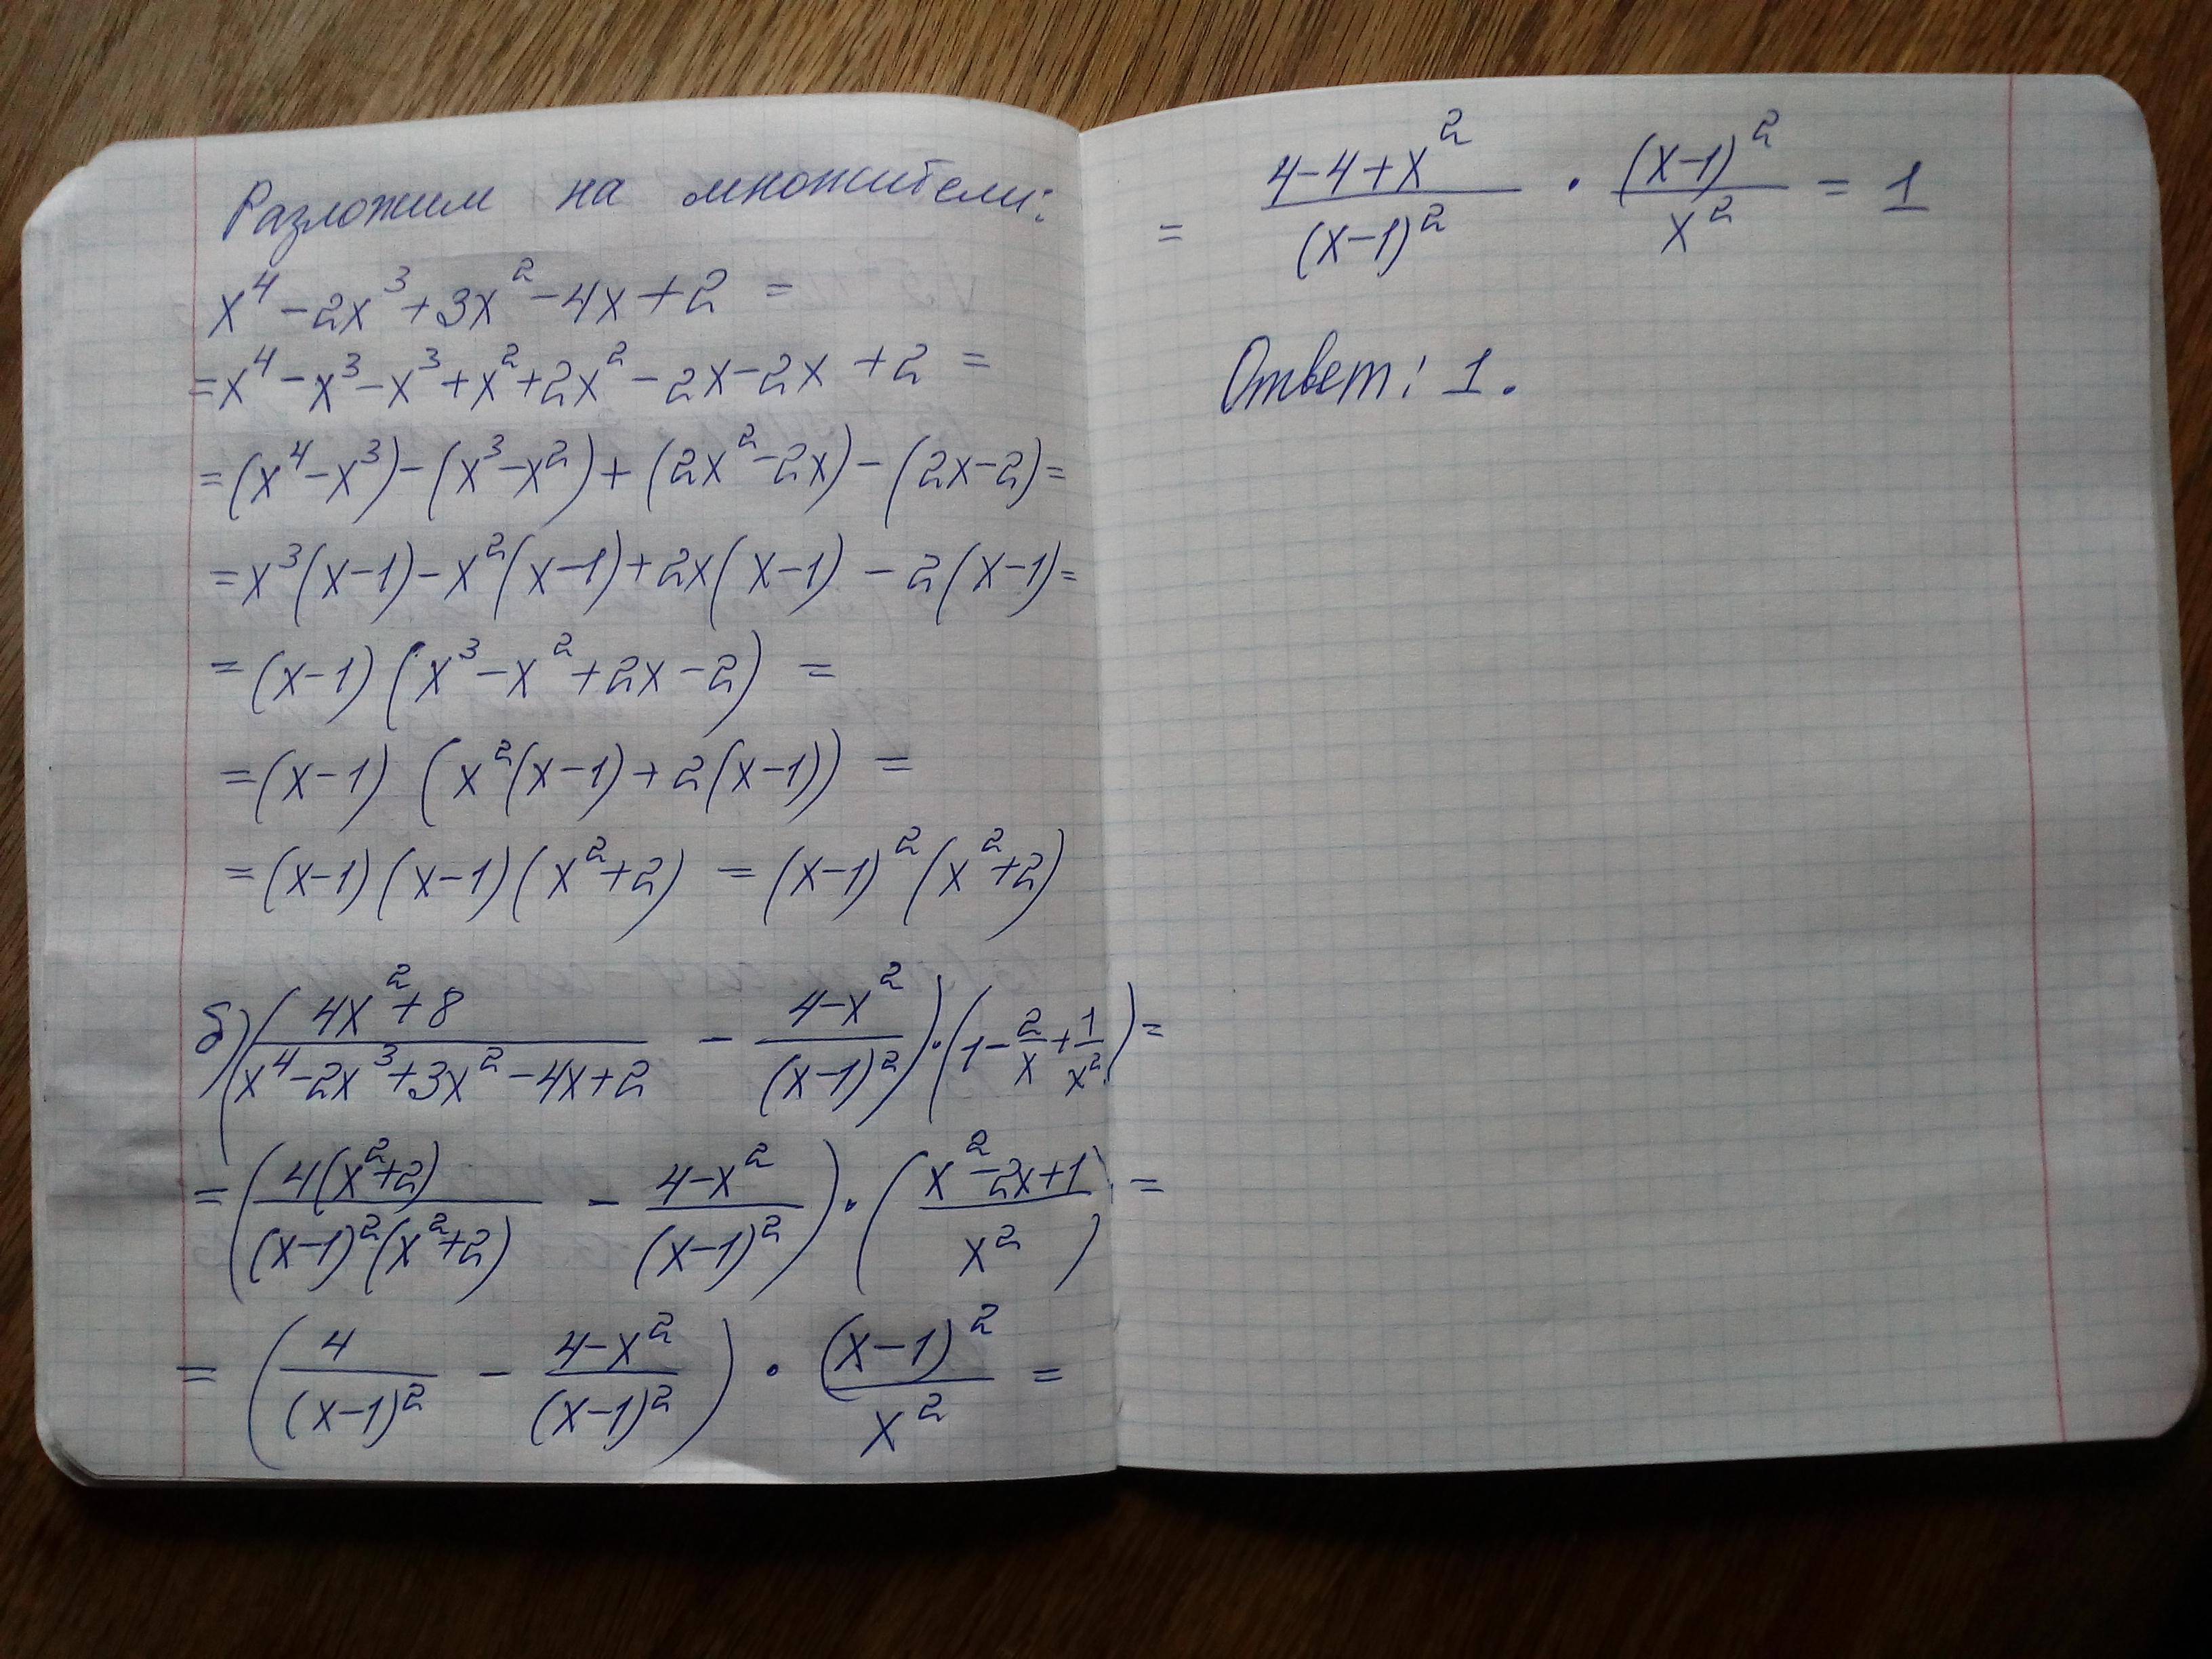 Разложим на множители:
x⁴-2x³+3x²-4x+2 =
=x⁴-x³-x³+x²+2x²-2x-2x+2 =
=(x⁴-x³)-(x³-x²)+(2x²-2x)-(2x-2)=
=x³(x-1)-x²(x-1)+2x(x-1)-2(x-1)=
=(x-1)(x³-x²+2x-2) =
=(x-1)(x²(x-1)+2(x-1)) =
=(x-1)(x-1)(x²+2) =(x-1)²(x²+2)
б) ((4x²+8)/(x⁴-2x³+3x²-4x+2) - (4-x²)/(x-1)²)·(1-2/x+1/x²)=
=(4(x²+2)/((x-1)²(x²+2)) - (4-x²)/(x-1)²)·((x²-2x+1)/x²) =
=(4/(x-1)² - (4-x²)/(x-1)²)·(x-1)²/x² =
= (4-4+x²)/(x-1)² · (x-1)²/x² = 1
Ответ: 1.